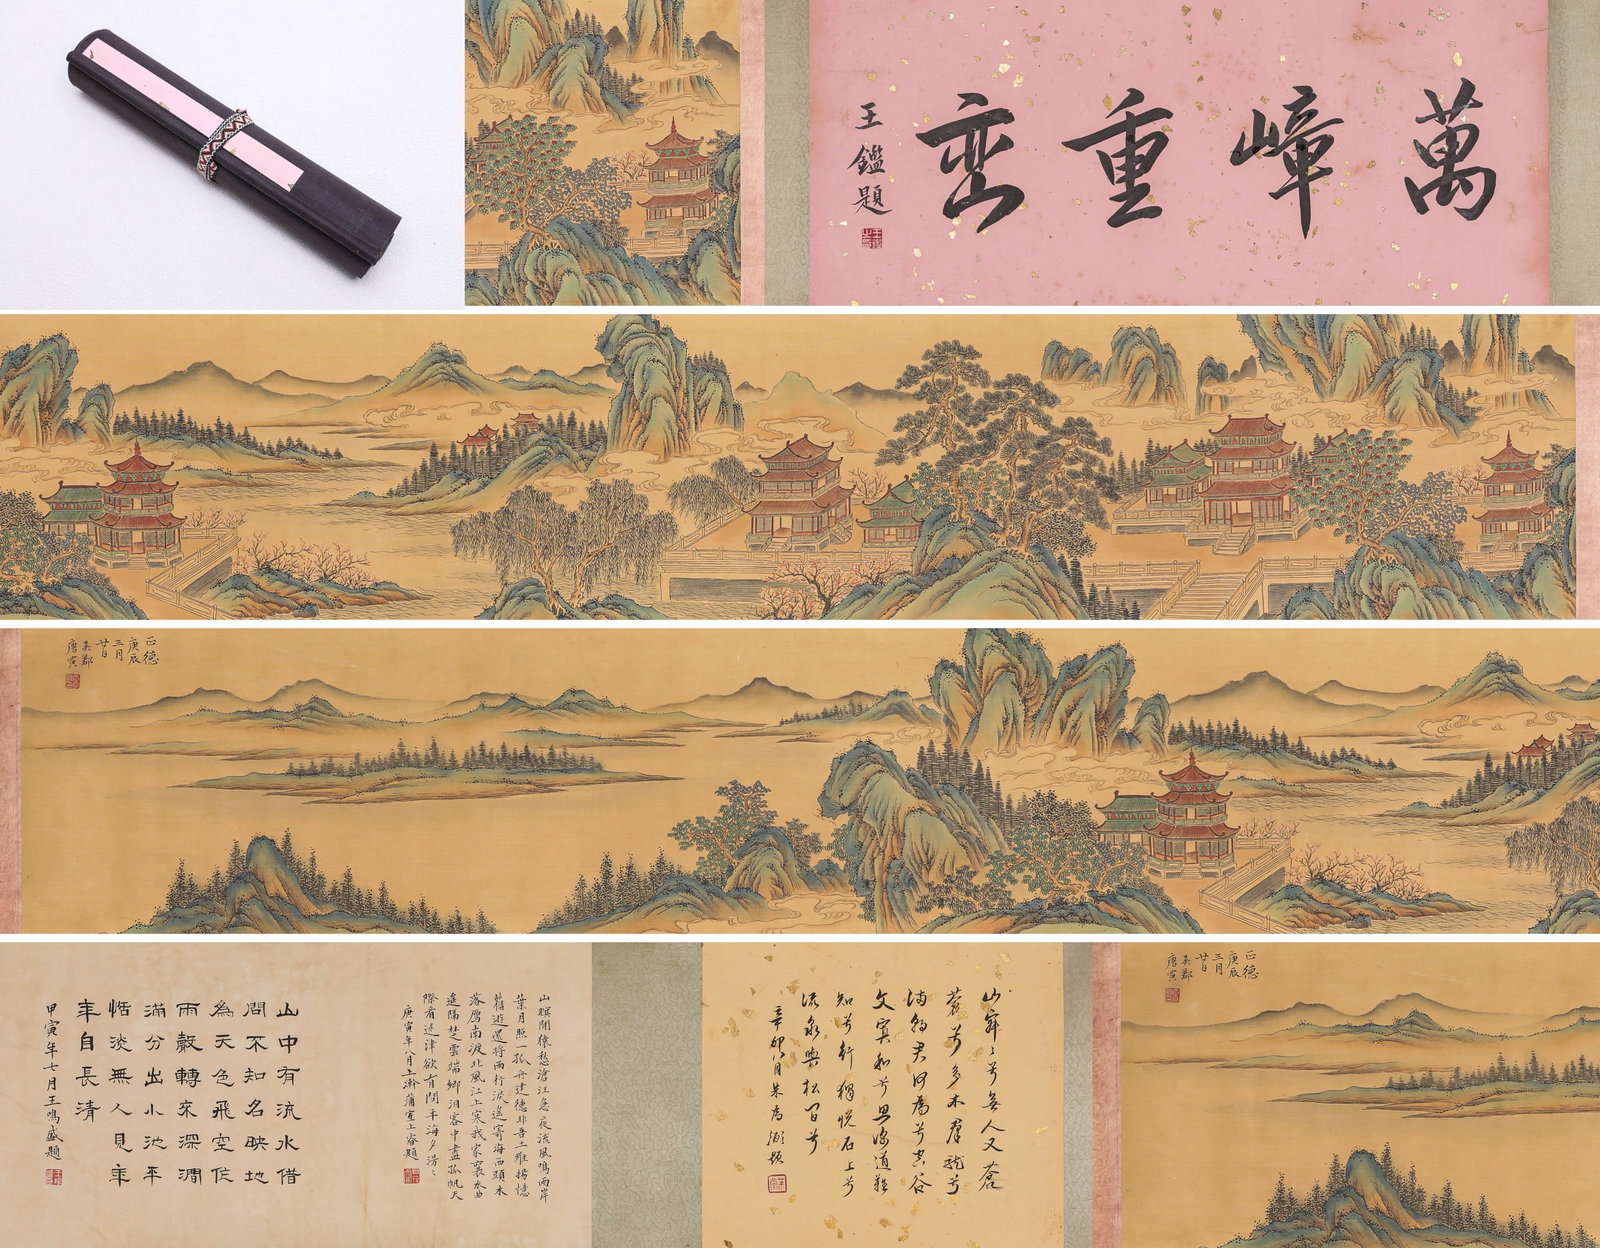 萬嶂重巒
王鑑題
正德
庚辰
三月
廿日
吳郡
唐寅
正德
庚辰
三月
廿日
吳郡
唐寅
山寂〻兮無人又蒼
蒼兮多木羣龍兮
滿朝君何為兮空谷
文寡和兮思深道難
知兮行獨悅石上兮
流泉與松間兮
辛卯八月朱為弼題
山暝聞猿愁滄江急夜流風鳴兩岸
葉月照一孤舟建德非吾土維揚憶
舊遊還將兩行淚遙寄海西頭木
落雁南渡北風江上寒我家襄水曲
遙隔楚雲端鄉淚客中盡孤帆天
際看迷津欲有問平海夕漫〻
庚寅年八月上澣蒲室上睿題
山中有流水借
問不知名映地
為天色飛空作
雨聲轉來深澗
滿分出小池平
恬淡無人見年
年自長清
甲寅年七月王鳴盛題